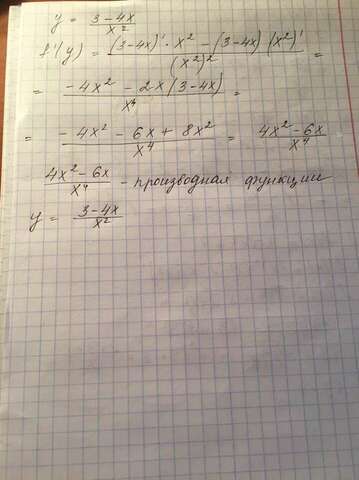 y = (3-4x)/x²
f'(y) = ((3-4x)' · x² - (3-4x)(x²)')/(x²)² =
= (-4x² - 2x(3-4x))/x⁴ =
= (-4x² - 6x + 8x²)/x⁴ = (4x² - 6x)/x⁴
(4x² - 6x)/x⁴ - производная функции
y = (3-4x)/x²